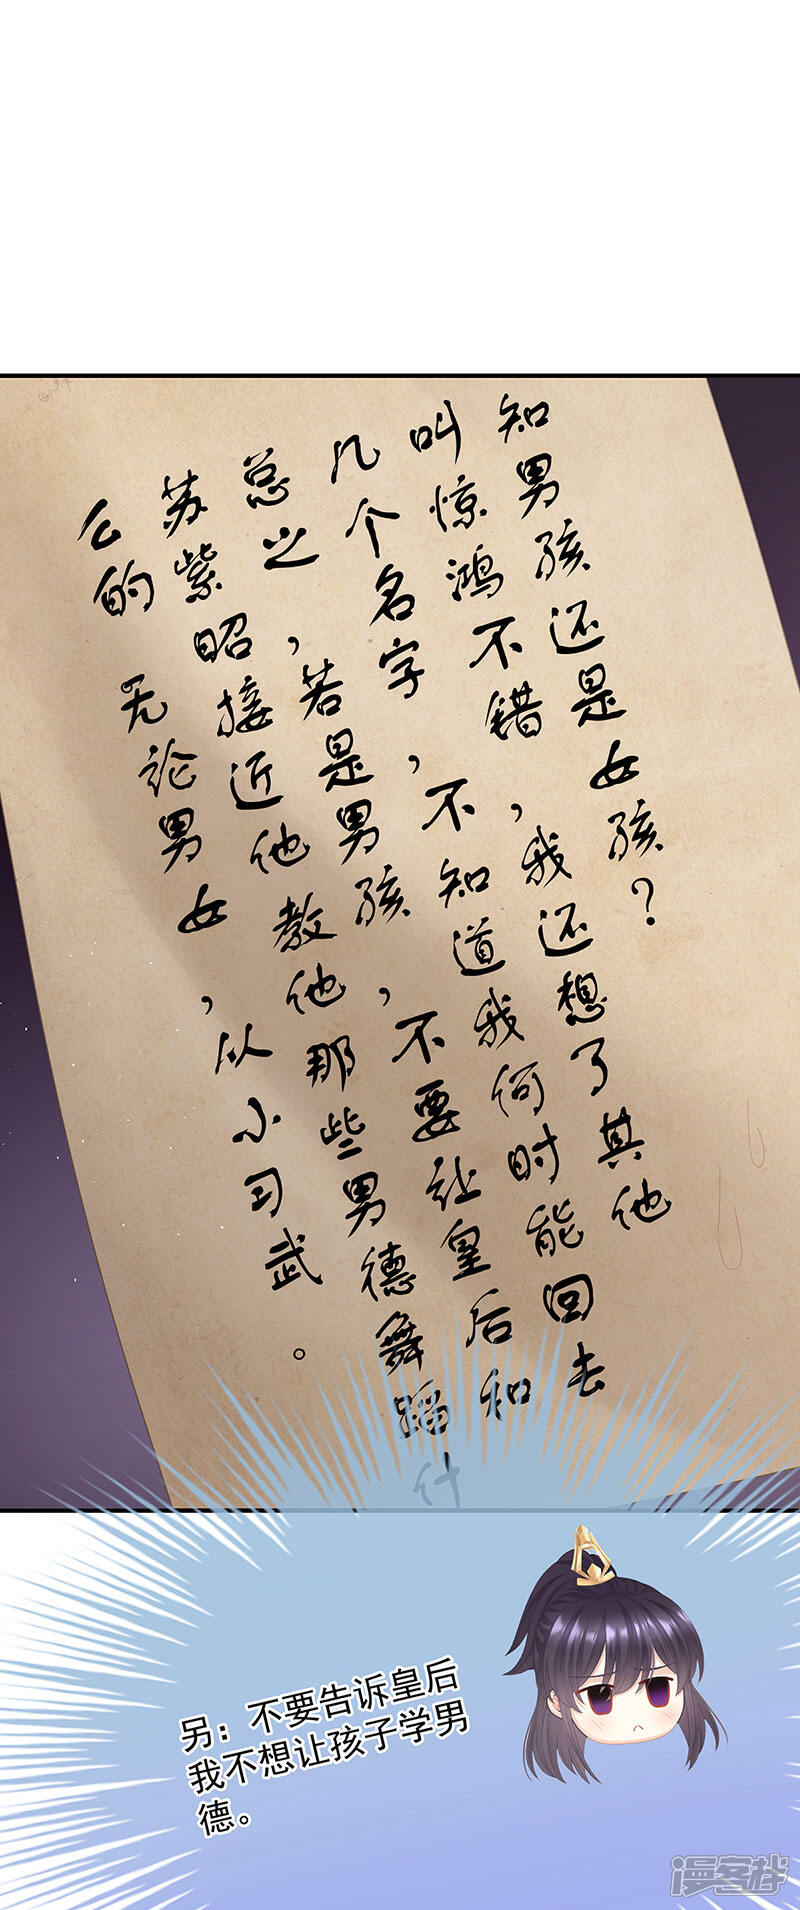 知男孩还是女孩？
叫惊鸿不错，我还想了其他
几个名字，不知道我何时能回去
总之，若是男孩，不要让皇后和
苏紫昭接近他教他那些男德舞蹈什
么的
无论男女，从小习武。
另：不要告诉皇后
我不想让孩子学男
德。
漫客栈